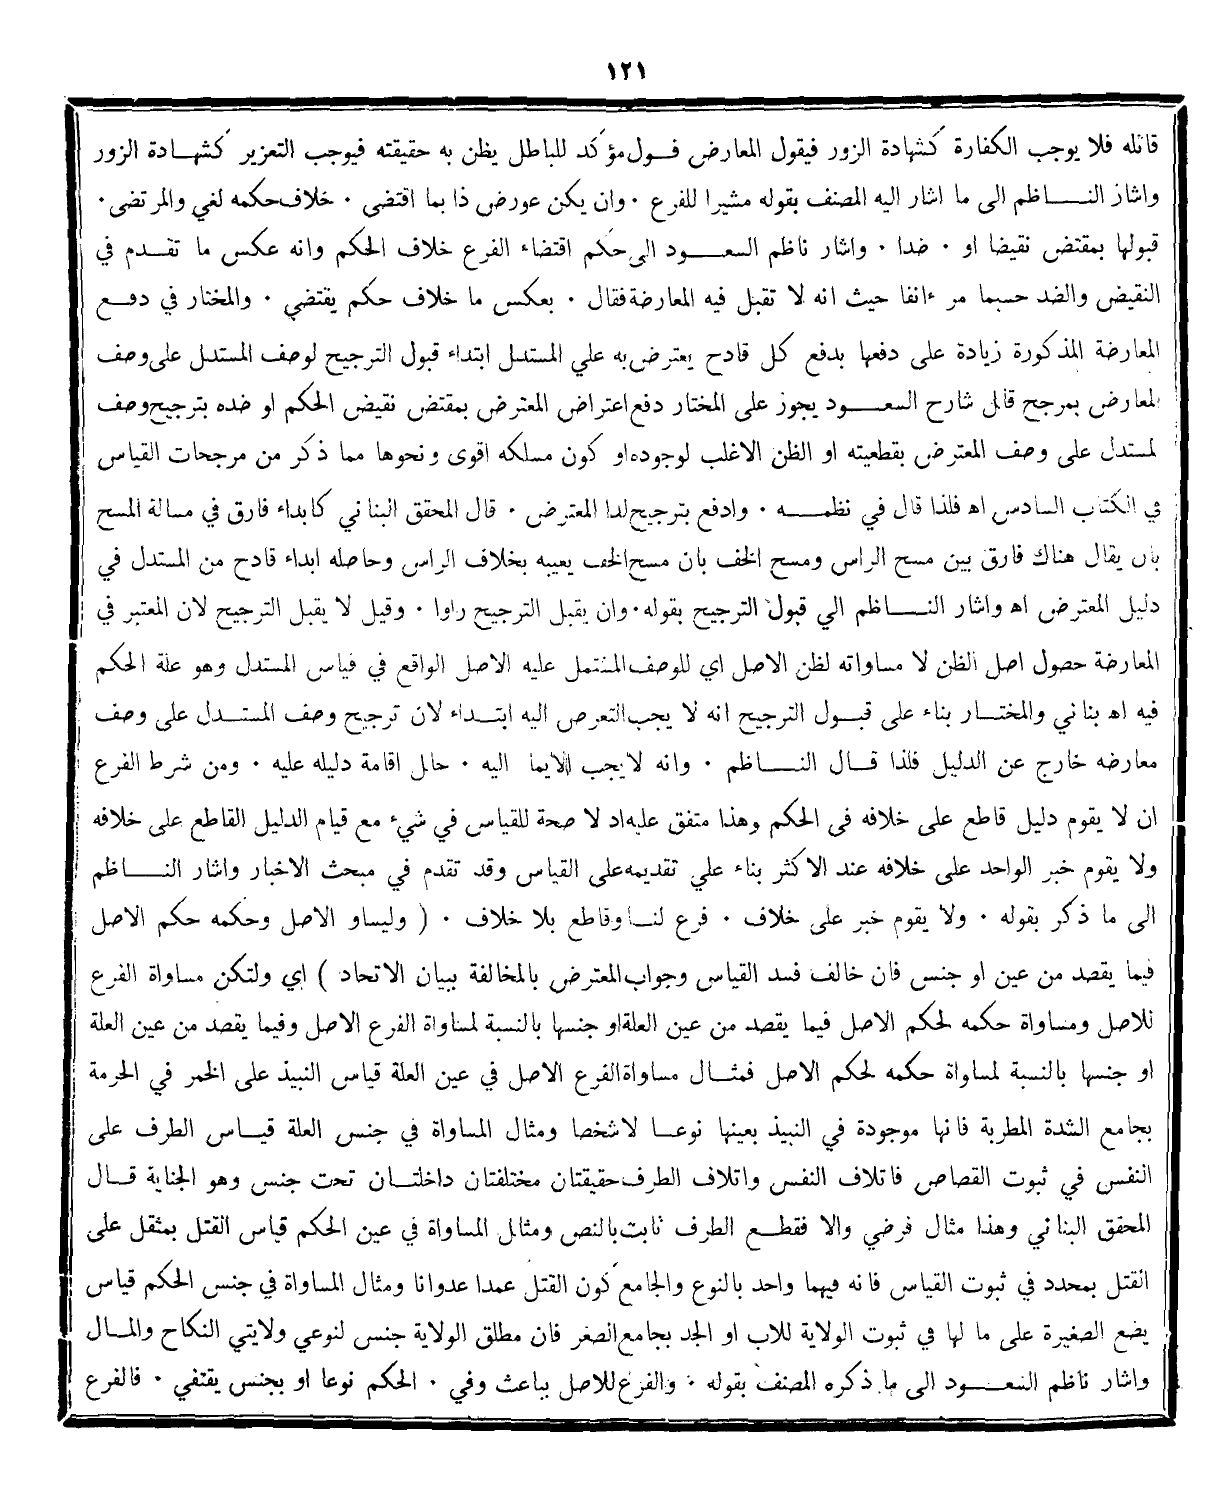 ١٢١
قائله فلا يوجب الكفارة كشهادة الزور فيقول المعارض قول مؤكد للباطل يظن به حقيقته فيوجب التعزير كشهادة الزور
واشار الناظم الى ما اشار اليه المصنف بقوله مشيرا للفرع ٠ وان يكن عورض ذا بما اقتضى ٠ خلاف حكمه لغي والمرتضى ٠
قبولها بمقتض نقيضا او ٠ ضدا ٠ واشار ناظم السعود الى حكم اقتضاء الفرع خلاف الحكم وانه عكس ما تقدم في
النقيض والضد حسبما مر ءانفا حيث انه لا تقبل فيه المعارضة فقال ٠ بعكس ما خلاف حكم يقتضي ٠ والمختار في دفع
المعارضة المذكورة زيادة على دفعها بدفع كل قادح يعترض به علي المستدل ابتداء قبول الترجيح لوصف المستدل على وصف
المعارض بمرجح قال شارح السعود يجوز على المختار دفع اعتراض المعترض بمقتض نقيض الحكم او ضده بترجيح وصف
لمستدل على وصف المعترض بقطعيته او الظن الاغلب لوجوده او كون مسلكه اقوى ونحوها مما ذكر من مرجحات القياس
في الكتاب السادس اه فلذا قال في نظمه ٠ وادفع بترجيح لذا المعترض ٠ قال المحقق البناني كابداء فارق في مسالة المسح
بان يقال هناك فارق بين مسح الراس ومسح الخف بان مسح الخف يعيبه بخلاف الراس وحاصله ابداء قادح من المستدل في
دليل المعترض اه واشار الناظم الي قبول الترجيح بقوله ٠ وان يقبل الترجيح راوا ٠ وقيل لا يقبل الترجيح لان المعتبر في
المعارضة حصول اصل الظن لا مساواته لظن الاصل اي للوصف المشتمل عليه الاصل الواقع في قياس المستدل وهو علة الحكم
فيه اه بناني والمختار بناء على قبول الترجيح انه لا يجب التعرض اليه ابتداء لان ترجيح وصف المستدل على وصف
معارضه خارج عن الدليل فلذا قال الناظم ٠ وانه لا يجب الايما اليه ٠ حال اقامة دليله عليه ٠ ومن شرط الفرع
ان لا يقوم دليل قاطع على خلافه فى الحكم وهذا متفق عليه اذ لا صحة للقياس في شيء مع قيام الدليل القاطع على خلافه
ولا يقوم خبر الواحد على خلافه عند الاكثر بناء علي تقديمه على القياس وقد تقدم في مبحث الاخبار واشار الناظم
الى ما ذكر بقوله ٠ ولا يقوم خبر على خلاف ٠ فرع لنا وقاطع بلا خلاف ٠ ( وليساو الاصل وحكمه حكم الاصل
فيما يقصد من عين او جنس فان خالف فسد القياس وجواب المعترض بالمخالفة ببيان الاتحاد ) اي ولتكن مساواة الفرع
للاصل ومساواة حكمه لحكم الاصل فيما يقصد من عين العلة او جنسها بالنسبة لمساواة الفرع الاصل وفيما يقصد من عين العلة
او جنسها بالنسبة لمساواة حكمه لحكم الاصل فمثال مساواة الفرع الاصل في عين العلة قياس النبيذ على الخمر في الحرمة
بجامع الشدة المطربة فانها موجودة في النبيذ بعينها نوعا لا شخصا ومثال المساواة في جنس العلة قياس الطرف على
النفس في ثبوت القصاص فاتلاف النفس واتلاف الطرف حقيقتان مختلفتان داخلتان تحت جنس وهو الجناية قال
المحقق البناني وهذا مثال فرضي والا فقطع الطرف ثابت بالنص ومثال المساواة في عين الحكم قياس القتل بمثقل على
القتل بمحدد في ثبوت القياس فانه فيهما واحد بالنوع والجامع كون القتل عمدا عدوانا ومثال المساواة في جنس الحكم قياس
بضع الصغيرة على ما لها في ثبوت الولاية للاب او الجد بجامع الصغر فان مطلق الولاية جنس لنوعي ولايتي النكاح والمال
واشار ناظم السعود الى ما ذكره المصنف بقوله ٠ والفرع للاصل بباعث وفي ٠ الحكم نوعا او بجنس يقتفي ٠ فالفرع